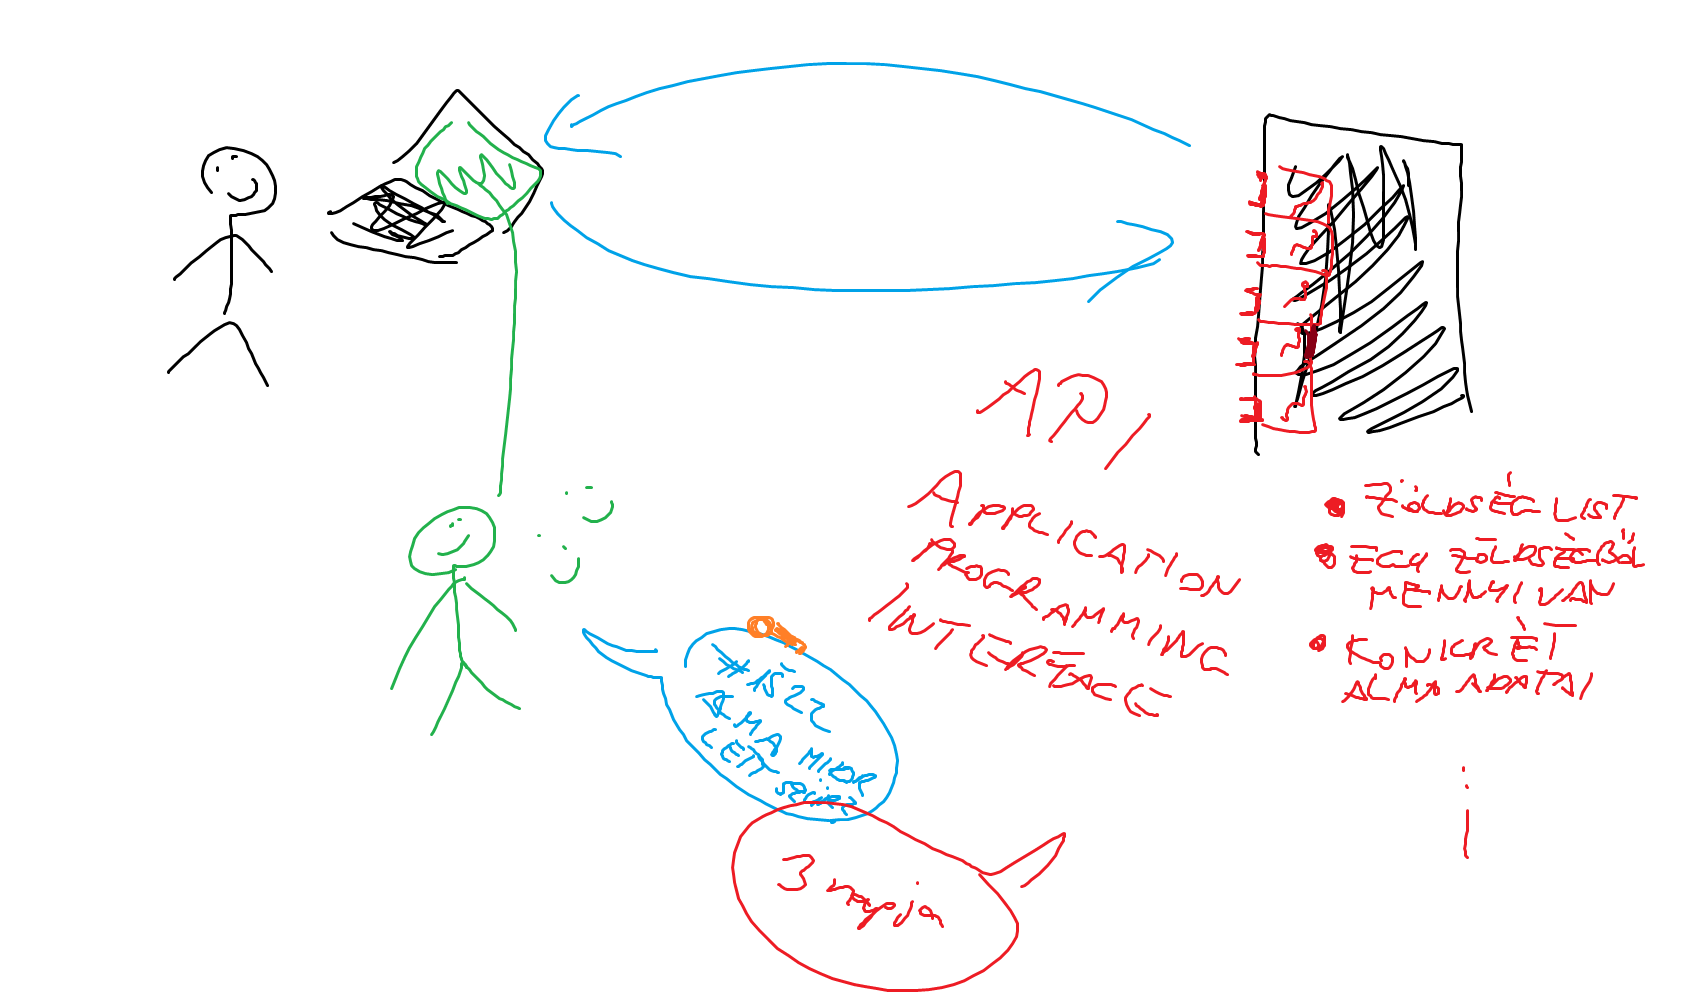 API
APPLICATION
PROGRAMMING
INTERFACE
• ZÖLDSÉG LIST
• EGY ZÖLDSÉGBŐL
MENNYI VAN
• KONKRÉT
ALMA ADATAI
#1522
ALMA MIKOR
LETT
3 napja